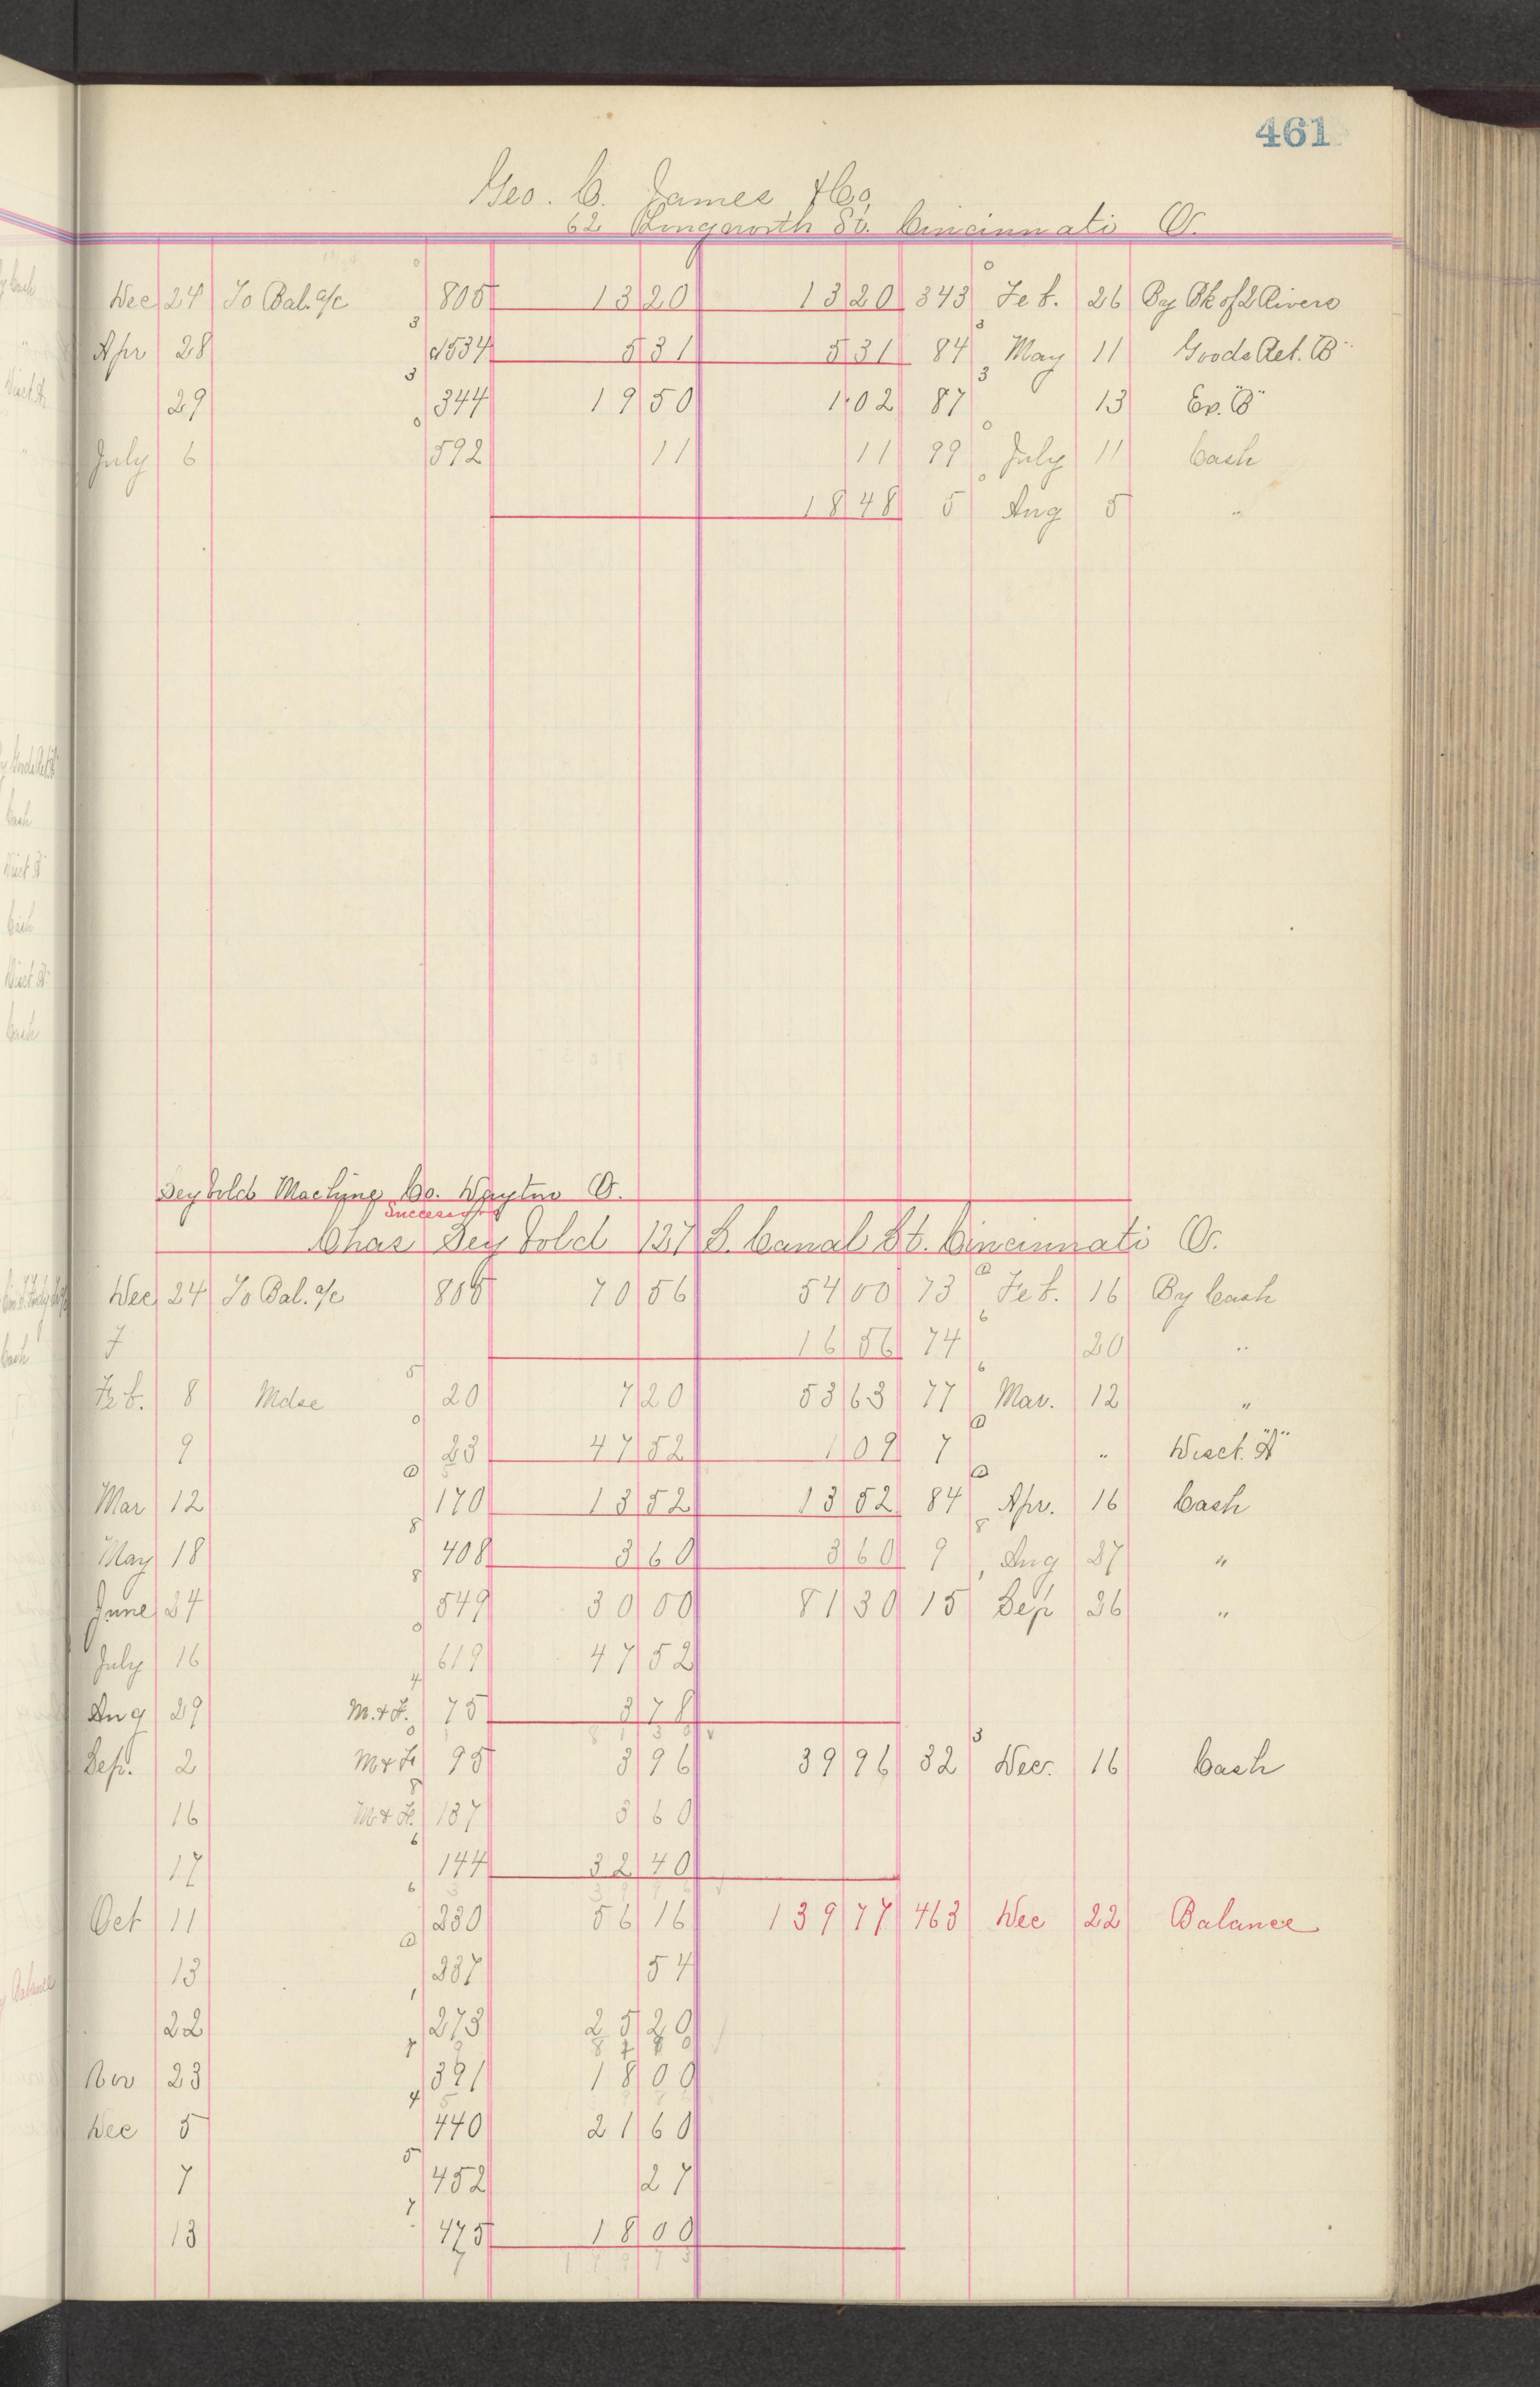 461
Geo. C. James & Co,
62 Longworth St. Cincinnati O.
Dec 24 To Bal. a/c 805 13 20 13 20 343 Feb. 26 By Bk of 2 Rivers
Apr 28 534 5 31 5 31 84 May 11 Goods Ret. "B"
29 344 19 50 1 02 87 13 Ex. "B"
July 6 592 11 11 99 July 11 Cash
18 48 5 Aug 5 "
Seybold Machine Co. Dayton O.
Successors
Chas Seybold 127 S. Canal St. Cincinnati O.
Dec 24 To Bal. a/c 805 70 56 54 00 73 Feb. 16 By Cash
7 16 56 74 20 "
Feb. 8 Mdse 20 7 20 53 63 77 Mar. 12 "
9 23 47 52 1 09 7 " Disct. "A"
Mar 12 170 13 52 13 52 84 Apr. 16 Cash
May 18 408 3 60 3 60 9 Aug 27 "
June 24 549 30 00 81 30 15 Sep 26 "
July 16 619 47 52
Aug 29 M. & F. 75 3 78
Sep. 2 M & F 95 3 96 39 96 32 Dec. 16 Cash
16 M & F. 137 3 60
17 144 32 40
Oct 11 230 56 16 139 77 463 Dec 22 Balance
13 237 54
22 273 25 20
Nov 23 391 18 00
Dec 5 440 21 60
7 452 27
13 475 18 00